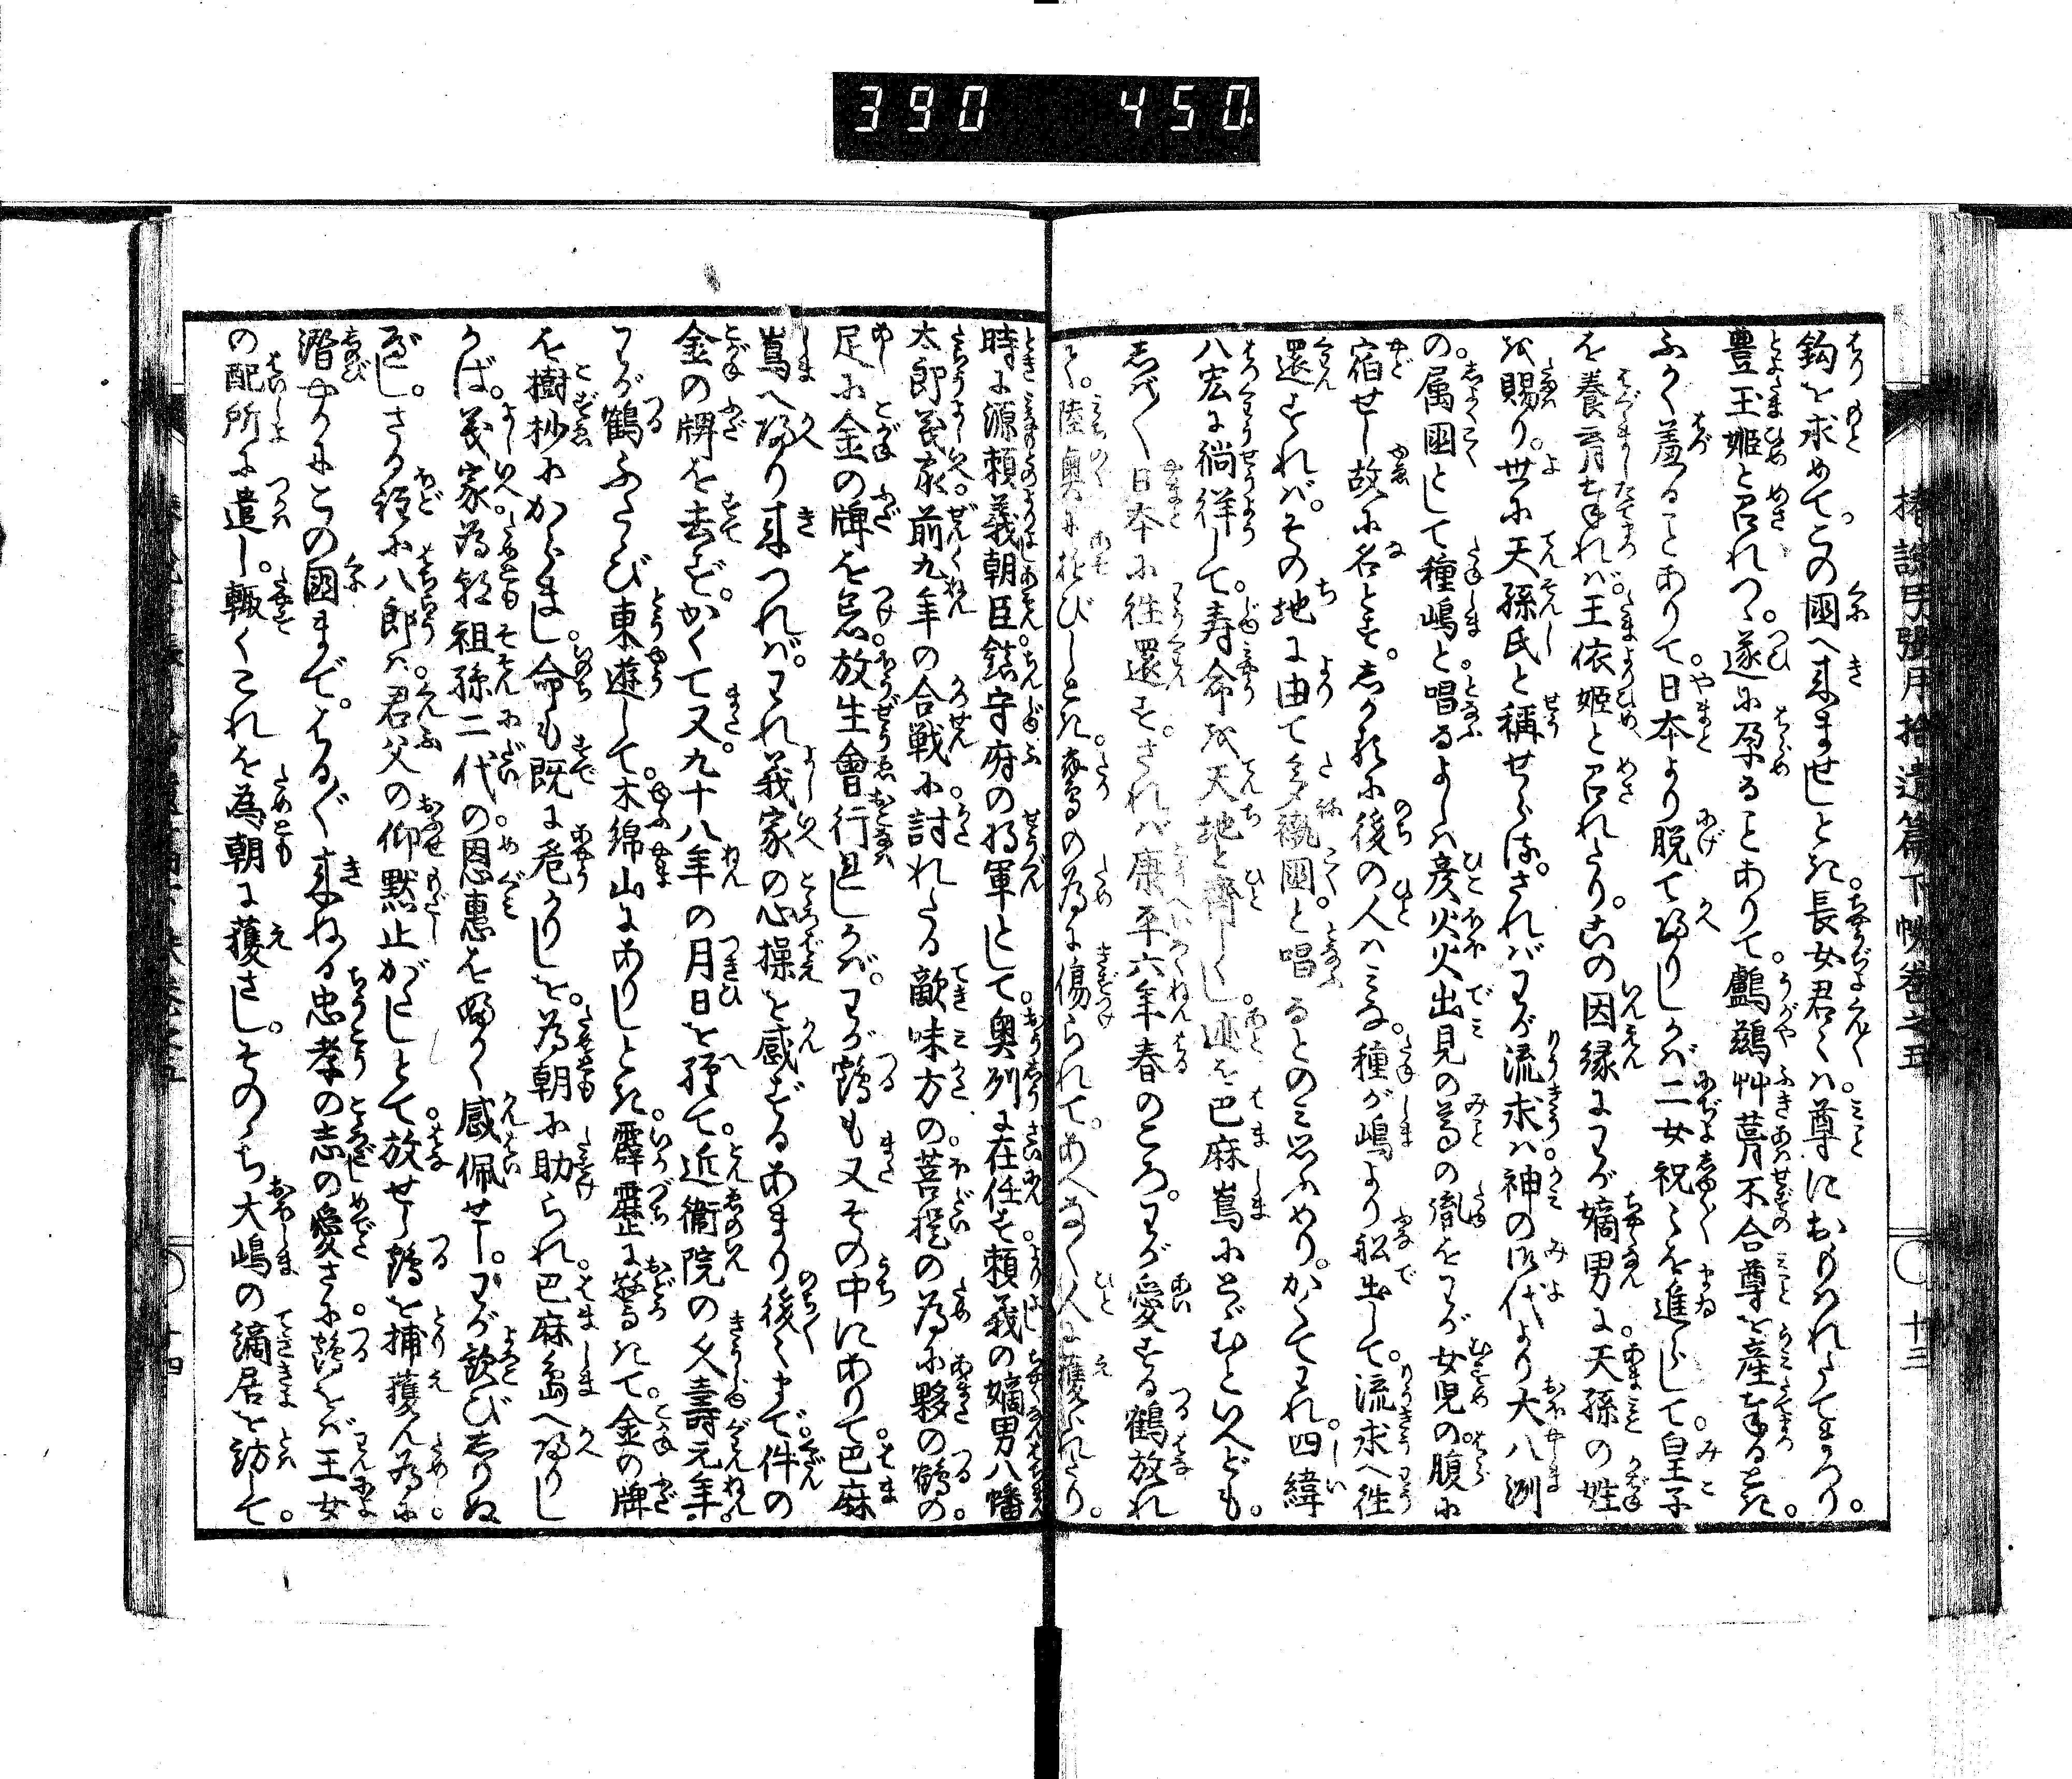 390 450.
椿説弓張月拾遺篇下帙巻之五
十三
鈎を求めてこの國へ来ませしとき長女君〻は尊におもはれたてまつり。
豊玉姫と召れつゝ。遂に孕ることありて。鸕鷀艸葺不合尊を産奉るとき。
ふかく羞ることありて。日本より脱て帰りしかバ二女祝〻を進らして。皇子
を養育奉れバ。王依姫と召れたり。この因縁にわが嫡男に。天孫の姓
を賜り。世に天孫氏と稱せらる。されバわが流求ハ。神の御代より大八洲
の。属國として種嶋と。唱るよしハ彦火火出見の尊の胤をわが女児の腹に
宿せし故に名とす。しか而に後の人ハミな。種が嶋より舩出して。流求へ往
還すれバ。その地に由て多襯國と唱るとのミ思ふめり。かくてわれ。四緯
八宏に徜徉して。寿命は天地と齊しく。迹を巴麻嶌にとゞむといへども。
しバ〳〵日本に往還す。されバ康平六年春のころ。わが愛する鶴放れ
て。陸奥に遊びしとき。鷲の為に傷られて。あへなく人に獲られたり。
時に源頼義朝臣。鎮守府の将軍として。奥列に在任す。頼義の嫡男八幡
太郎義家。前九年の合戦に。討れたる敵味方の。菩提の為に夥の鶴の。
足に金の牌を忌。放生會行ひしかバ。わが鶴も又その中にありて。巴麻
嶌へ帰り来つれバ。われ義家の心操を感ずるあまり後〻まで。件の
金の牌を去ず。かくて又。九十八年の月日を経て。近衛院の久壽元年。
わが鶴ふたゝび東遊して。木綿山にありしとき。霹靂に驚きて。金の牌
を樹杪にからまし。命も既に危かりしを。為朝に助られ。巴麻島へ帰りし
かば。義家為朝祖孫二代の。恩惠を深く感佩せり。わが歓びしりぬ
べし。さる程に八郎は。君父の仰黙止がたしとて。放せし鶴を捕獲ん為に。
潜やかにこの國まで。はる〴〵来ぬる忠孝の志の愛さに。鶴をバ王女
の配所に遣し。輙くこれを為朝に獲さし。そのゝち大嶋の謫居を訪して。
十四